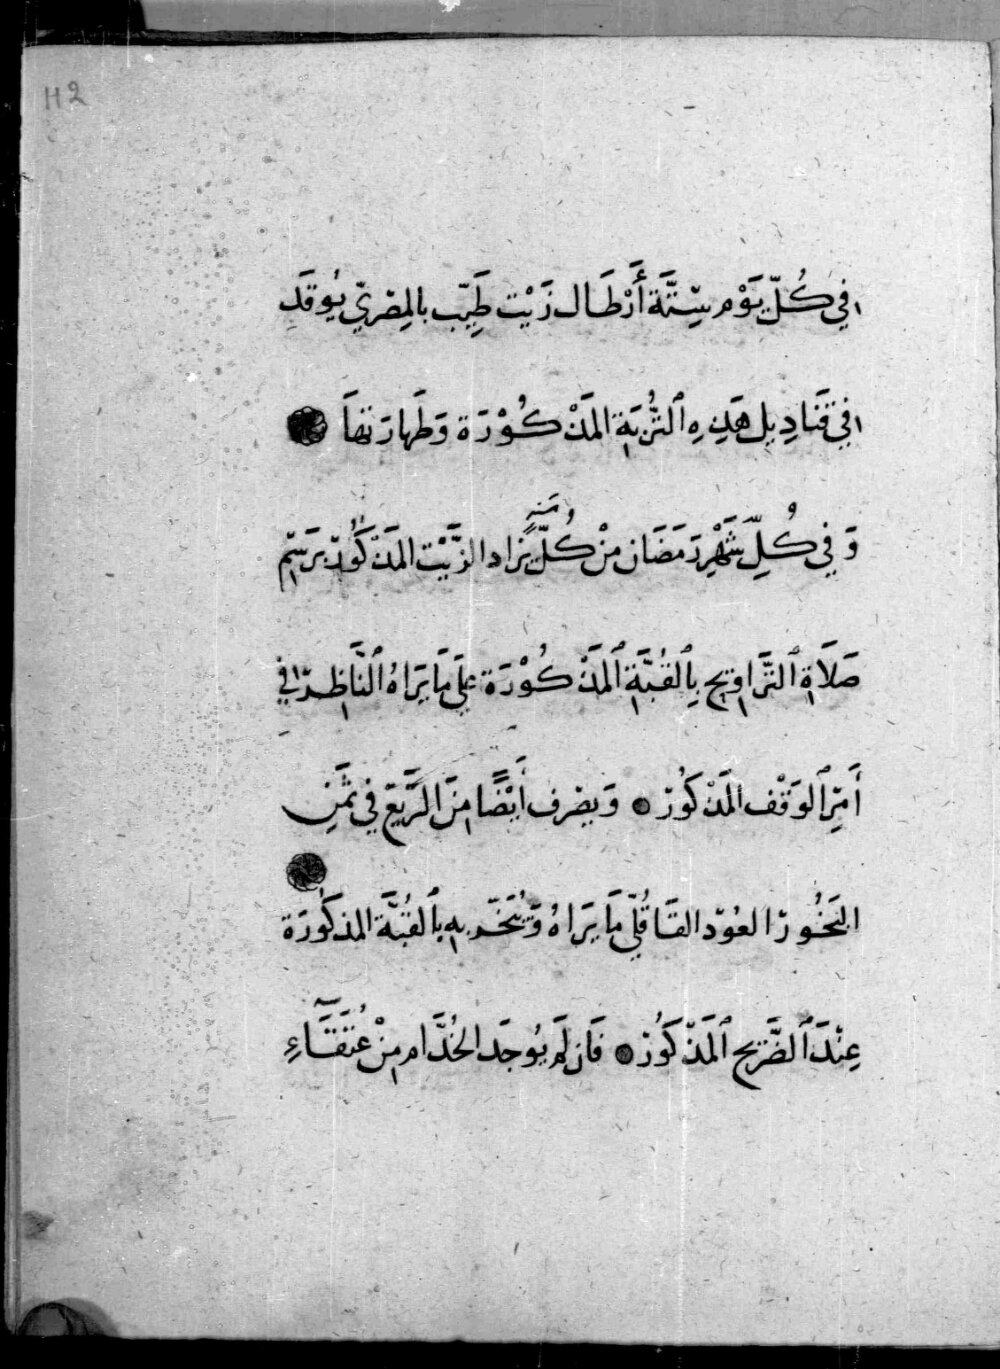 112
في كُلّ يَوْم سِتَّة أَرْطَال زَيْت طَيِّب بالمِصْريّ يُوقَدِ
في قَنَادِيل هَذِهِ ٱلتُّرْبَةِ المَذْكُوْرَة وَطَهارَتهَا
وَفي كُلِّ شَهْرِ رَمَضَان مِنْ كُلّ سَنَةٍ يُزاد الزَّيْت المَذكُوْر بِرَسْمِ
صَلَاةِ ٱلتَّرَاوِيحِ بِٱلقُبَّةِ ٱلمَذْكُوْرَة عَلَى مَا يَرَاهُ ٱلنَّاظِرُ في
أَمْرِ ٱلوَقْف ٱلمَذْكُوْر وَيصْرف أَيْضًا مِنَ الرَّيْع في ثَمَنِ
البَخُور العُوْد القَاقُلِّي مَا يَرَاهُ وَيُبَخَّر بِهِ بِٱلقُبَّة المذكُورَة
عِنْدَ ٱلضَّرِيحِ ٱلمَذْكُوْر فَان لَم يُوجَد الخُدَّام مِنْ عُتَقَاءِ